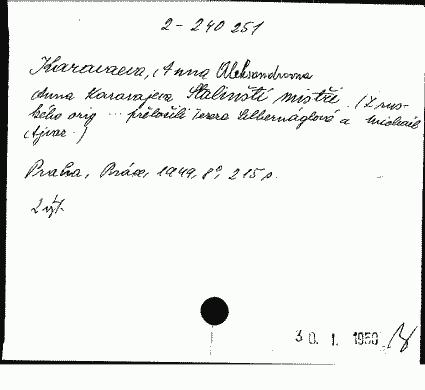 2-240 251
Karavaeva, Anna Aleksandrovna
Anna Karavajeva Stalinští mistři. (Z rus-
kého orig ... přeložili Silbernáglová a Michail
Praha, Práce, 1949, 8°, 215 s.
2 výt.
30. 1. 1950